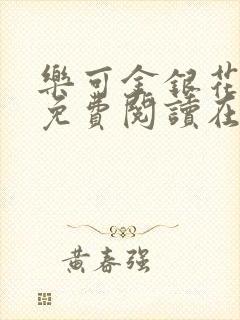 樂可金銀花
免費閱讀在
黃春強